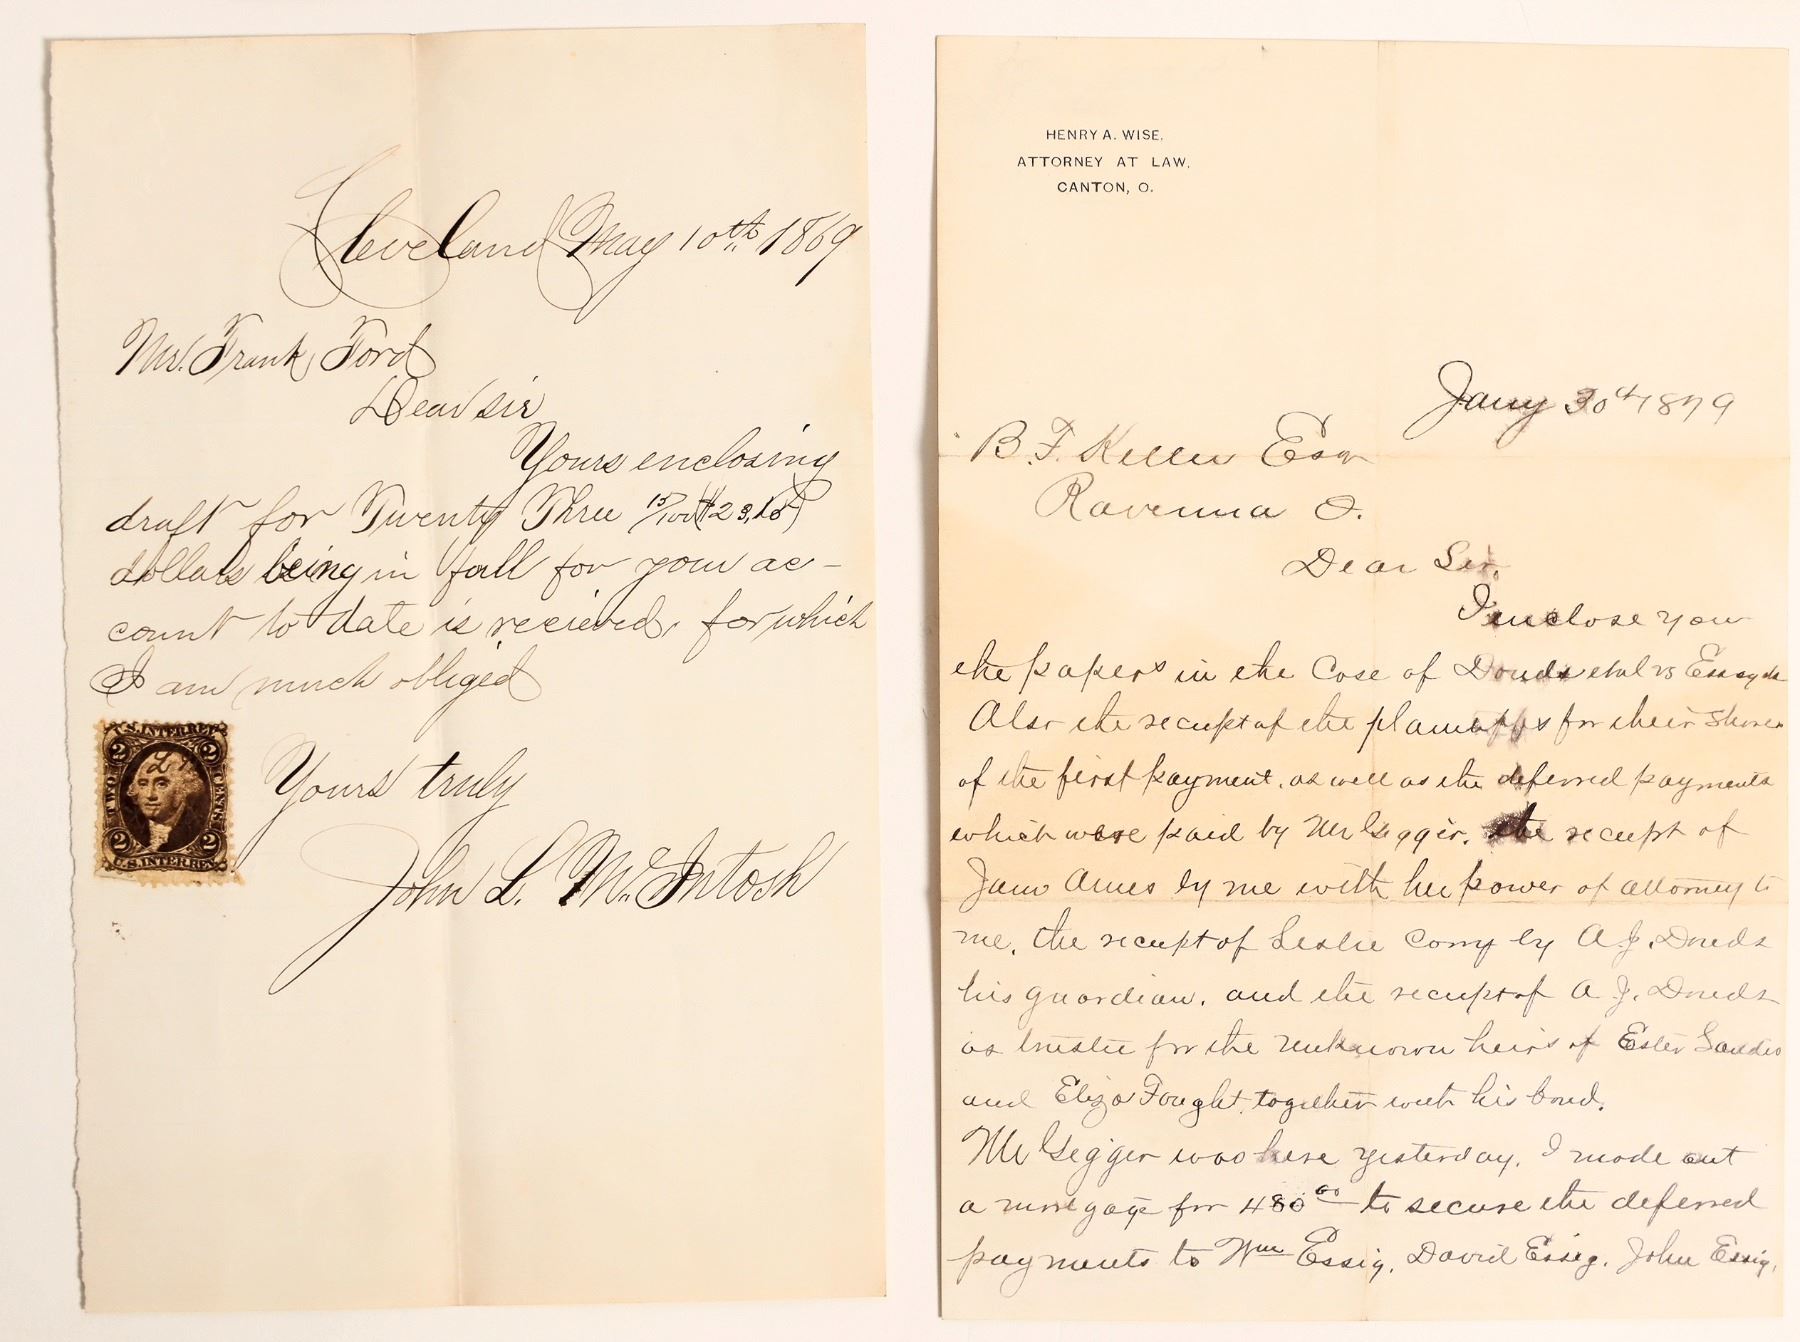 Cleveland May 10th 1869
Mr. Frank Ford
Dear sir
Yours enclosing
draft for Twenty Three 15/100 ($23.15)
dollars being in full for your ac-
count to date is recieved, for which
I am much obliged
Yours truly
John L. McIntosh
U.S. INTER. REV.
2 2
TWO CENTS
2 2
U.S. INTER. REV.
HENRY A. WISE.
ATTORNEY AT LAW.
CANTON, O.
Jany 30th 1879
B. F. Keller Esqr
Ravenna O.
Dear Sir,
I enclose you
the papers in the Case of Douds etal vs Essig
Also the receipt of the plaintiffs for their Shares
of the first payment, as well as the deferred payments
which were paid by Mr Gegger. the receipt of
Jane Ames by me with her power of attorney to
me, the receipt of Leslie Corry by A. J. Douds
his guardian, and the receipt of A. J. Douds
as trustee for the unknown heirs of Ester
and Eliza Fought, together with his bond.
Mr Gegger was here yesterday, I made out
a mortgage for 480 00 to secure the deferred
payments to Wm Essig, David Essig, John Essig,